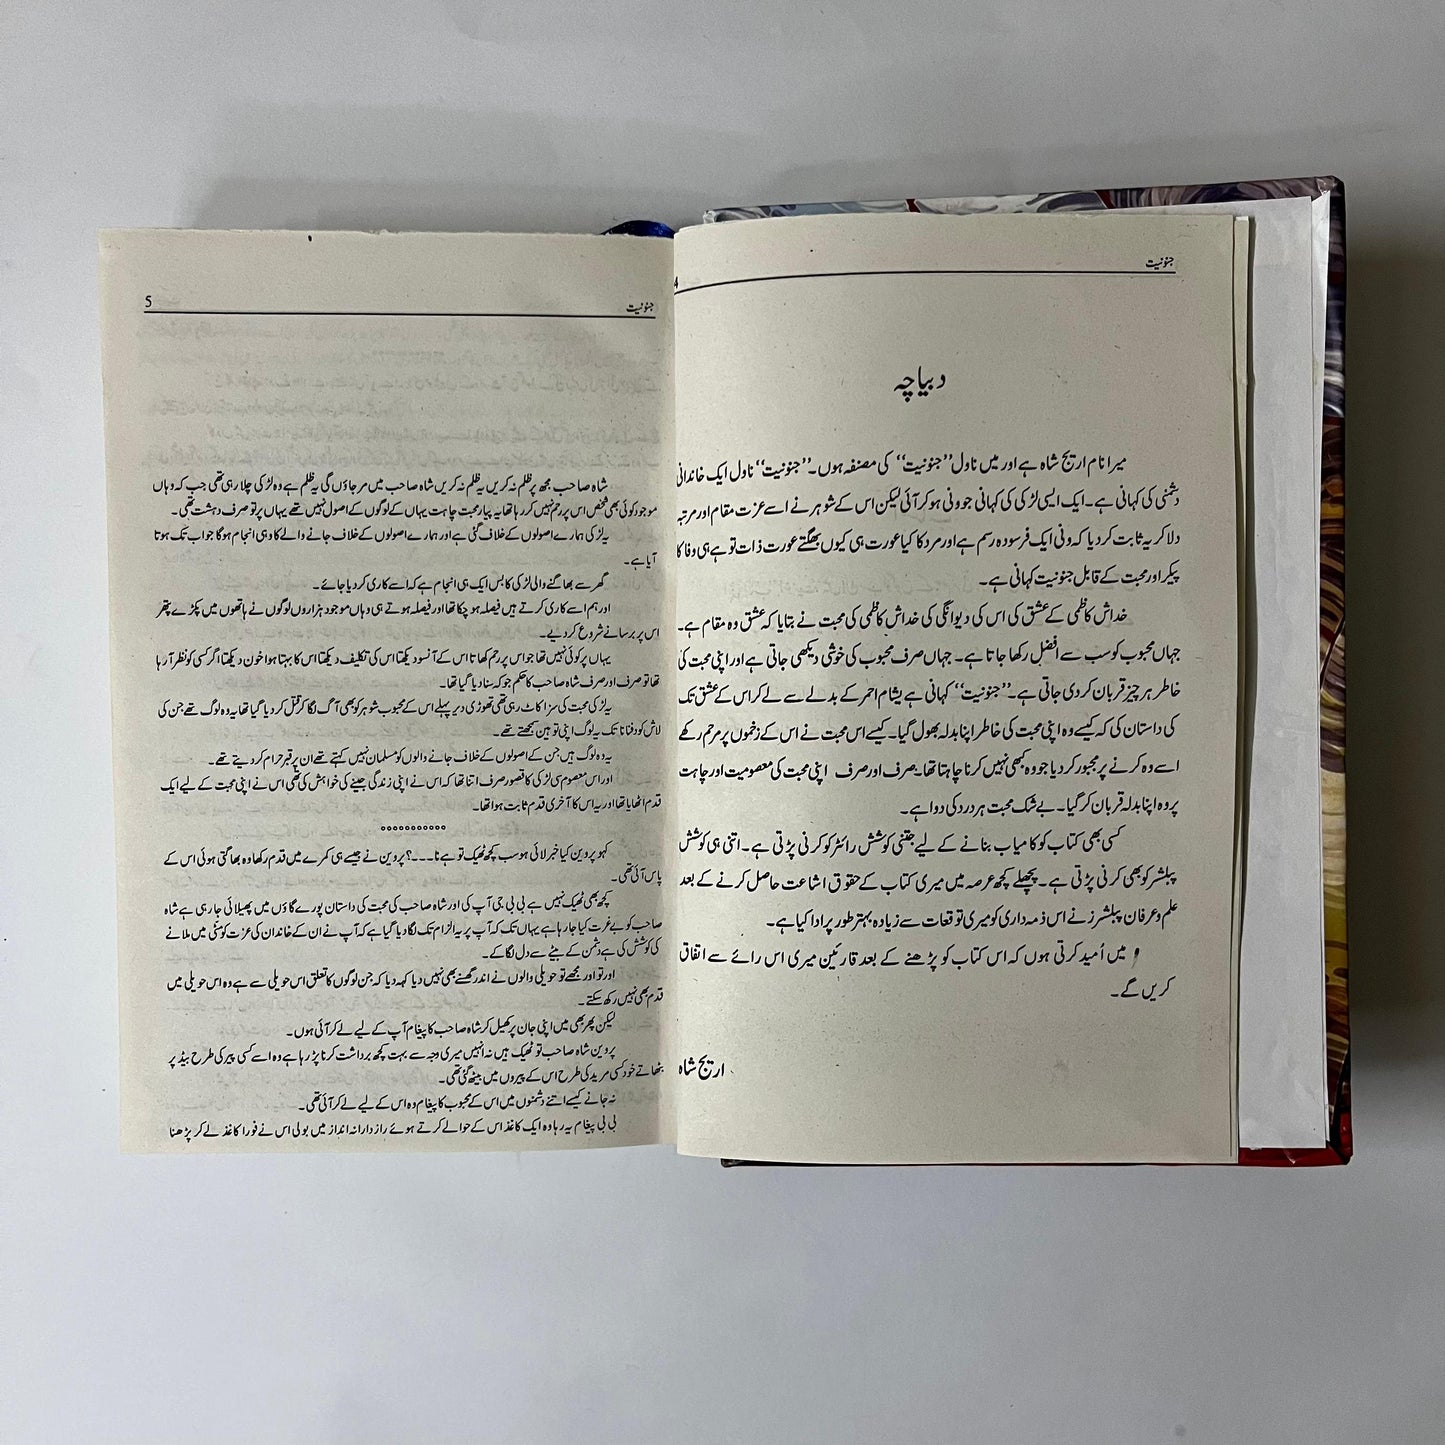 جنونیت
4
دیباچہ
میرا نام اریج شاہ ہے اور میں ناول ’’جنونیت‘‘ کی مصنفہ ہوں۔ ’’جنونیت‘‘ ناول ایک خاندانی
دشمنی کی کہانی ہے۔ ایک ایسی لڑکی کی کہانی جو ونی ہو کر آئی لیکن اس کے شوہر نے اسے عزت مقام اور مرتبہ
دلا کر یہ ثابت کر دیا کہ ونی ایک فرسودہ رسم ہے اور مرد کا کیا عورت ہی کیوں بھگتے عورت ذات تو ہے ہی وفا کا
پیکر اور محبت کے قابل جنونیت کہانی ہے۔
خداش کاظمی کے عشق کی اس کی دیوانگی کی خداش کاظمی کی محبت نے بتایا کہ عشق وہ مقام ہے۔
جہاں محبوب کو سب سے افضل رکھا جاتا ہے۔ جہاں صرف محبوب کی خوشی دیکھی جاتی ہے اور اپنی محبت کی
خاطر ہر چیز قربان کر دی جاتی ہے۔ ’’جنونیت‘‘ کہانی ہے یشام احمر کے بدلے سے لے کر اس کے عشق تک
کی داستان کی کہ کیسے وہ اپنی محبت کی خاطر اپنا بدلہ بھول گیا۔ کیسے اس محبت نے اس کے زخموں پر مرحم رکھے
اسے وہ کرنے پر مجبور کر دیا جو وہ کبھی نہیں کرنا چاہتا تھا۔ صرف اور صرف اپنی محبت کی معصومیت اور چاہت
پر وہ اپنا بدلہ قربان کر گیا۔ بے شک محبت ہر درد کی دوا ہے۔
کسی بھی کتاب کو کامیاب بنانے کے لیے جتنی کوشش رائٹر کو کرنی پڑتی ہے۔ اتنی ہی کوشش
پبلشر کو بھی کرنی پڑتی ہے۔ پچھلے کچھ عرصہ میں میری کتاب کے حقوق اشاعت حاصل کرنے کے بعد
علم و عرفان پبلشرز نے اس ذمہ داری کو میری توقعات سے زیادہ بہتر طور پر ادا کیا ہے۔
میں اُمید کرتی ہوں کہ اس کتاب کو پڑھنے کے بعد قارئین میری اس رائے سے اتفاق
کریں گے۔
اریج شاہ
جنونیت
5
شاہ صاحب مجھ پر ظلم نہ کریں یہ ظلم نہ کریں شاہ صاحب میں مر جاؤں گی یہ ظلم ہے وہ لڑکی چلا رہی تھی جب کہ وہاں
موجود کوئی بھی شخص اس پر رحم نہیں کر رہا تھا یہ پیار محبت چاہت یہاں کے لوگوں کے اصول نہیں تھے یہاں پر تو صرف دہشت تھی۔
یہ لڑکی ہمارے اصولوں کے خلاف گئی ہے اور ہمارے اصولوں کے خلاف جانے والے کا وہی انجام ہوگا جو اب تک ہوتا
آیا ہے۔
گھر سے بھاگنے والی لڑکی کا بس ایک ہی انجام ہے کہ اسے کاری کر دیا جائے۔
اور ہم اسے کاری کرتے ہیں فیصلہ ہو چکا تھا اور فیصلہ ہوتے ہی وہاں موجود ہزاروں لوگوں نے ہاتھوں میں پکڑے پتھر
اس پر برسانے شروع کر دیے۔
یہاں پر کوئی نہیں تھا جو اس پر رحم کھاتا اس کے آنسو دیکھتا اس کی تکلیف دیکھتا اس کا بہتا ہوا خون دیکھتا اگر کسی کو نظر آ رہا
تھا تو صرف اور صرف شاہ صاحب کا حکم جو کہ سنا دیا گیا تھا۔
یہ لڑکی محبت کی سزا کاٹ رہی تھی تھوڑی دیر پہلے اس کے محبوب شوہر کو بھی آگ لگا کر قتل کر دیا گیا تھا یہ وہ لوگ تھے جن کی
لاش کو دفنانا تک یہ لوگ اپنی توہین سمجھتے تھے۔
یہ وہ لوگ ہیں جن کے اصولوں کے خلاف جانے والوں کو مسلمان نہیں کہتے تھے ان پر قبر حرام کر دیتے تھے۔
اور اس معصوم سی لڑکی کا قصور صرف اتنا تھا کہ اس نے اپنی زندگی جینے کی خواہش کی تھی اس نے اپنی محبت کے لیے ایک
قدم اٹھایا تھا اور یہ اس کا آخری قدم ثابت ہوا تھا۔
٥٥٥٥٥٥٥٥٥٥٥
کہو پروین کیا خبر لائی ہو سب کچھ ٹھیک تو ہے نا۔۔۔؟ پروین نے جیسے ہی کمرے میں قدم رکھا وہ بھاگتی ہوئی اس کے
پاس آئی تھی۔
کچھ بھی ٹھیک نہیں ہے بی بی جی آپ کی اور شاہ صاحب کی محبت کی داستان پورے گاؤں میں پھیلائی جا رہی ہے شاہ
صاحب کو بے غرت کیا جا رہا ہے یہاں تک کہ آپ پر یہ الزام تک لگا دیا گیا ہے کہ آپ نے ان کے خاندان کی عزت کو مٹی میں ملانے
کی کوشش کی ہے دشمن کے بیٹے سے دل لگا کے۔
اور تو اور مجھے تو حویلی والوں نے اندر گھسنے بھی نہیں دیا کہہ دیا کہ جن لوگوں کا تعلق اس حویلی سے ہے وہ اس حویلی میں
قدم بھی نہیں رکھ سکتے۔
لیکن پھر بھی میں اپنی جان پر کھیل کر شاہ صاحب کا پیغام آپ کے لیے لے کر آئی ہوں۔
پروین شاہ صاحب تو ٹھیک ہیں نہ انہیں میری وجہ سے بہت کچھ برداشت کرنا پڑ رہا ہے وہ اسے کسی پیر کی طرح بیڈ پر
بٹھاتے خود کسی مرید کی طرح اس کے پیروں میں بیٹھ گئی تھی۔
نہ جانے کیسے اتنے دشمنوں میں اس کے محبوب کا پیغام وہ اس کے لیے لے کر آئی تھی۔
بی بی پیغام یہ رہا وہ ایک کاغذ اس کے حوالے کرتے ہوئے رازدارانہ انداز میں بولی اس نے فورا کاغذ لے کر پڑھنا